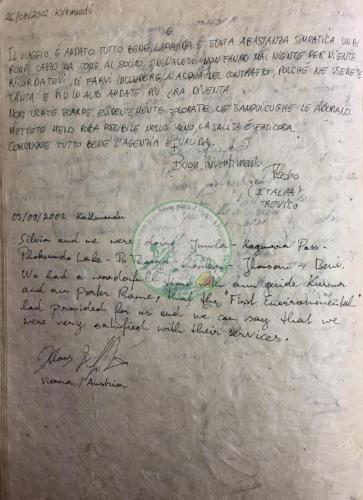 26/08/2002 Kathmandu
IL VIAGGIO È ANDATO TUTTO BENE, LA GUIDA È STATA ABASTANZA SIMPATICA UN PO'
ROMPI CAZZO MA COME AL SOLITO QUI NON FANNO MAI NIENTE PER NIENTE
RICORDATEVI DI FARVI INCLUDERE L'ACQUA NEL CONTRATTO, POICHÈ NE USERETE
TANTA E PIÙ IN ALTO ANDATE PIÙ CARA DIVENTA.
NON USATE SCARPE EVIDENTEMENTE COLORATE, LE SANGUISUGHE LE ADORANO.
METTETE MENO ROBA POSSIBILE NELLO ZAINO, LA SALITA È FATICOSA.
COMUNQUE TUTTO BENE L'AGENZIA È VALIDA.
Buon divertimento
(ITALIA)
TREVISO
03/09/2002 Kathmandu
Silvia and we were doing Jumla - Kagmara Pass -
Phoksundo Lake - Do Tarap - - Jhomsom - Beni.
We had a wonderfull time with our guide Kumar
and our Porter Rame, that the "First Environmental"
had provided for us and we can say that we
were very satisfied with their services.
Klaus
Vienna / Austria